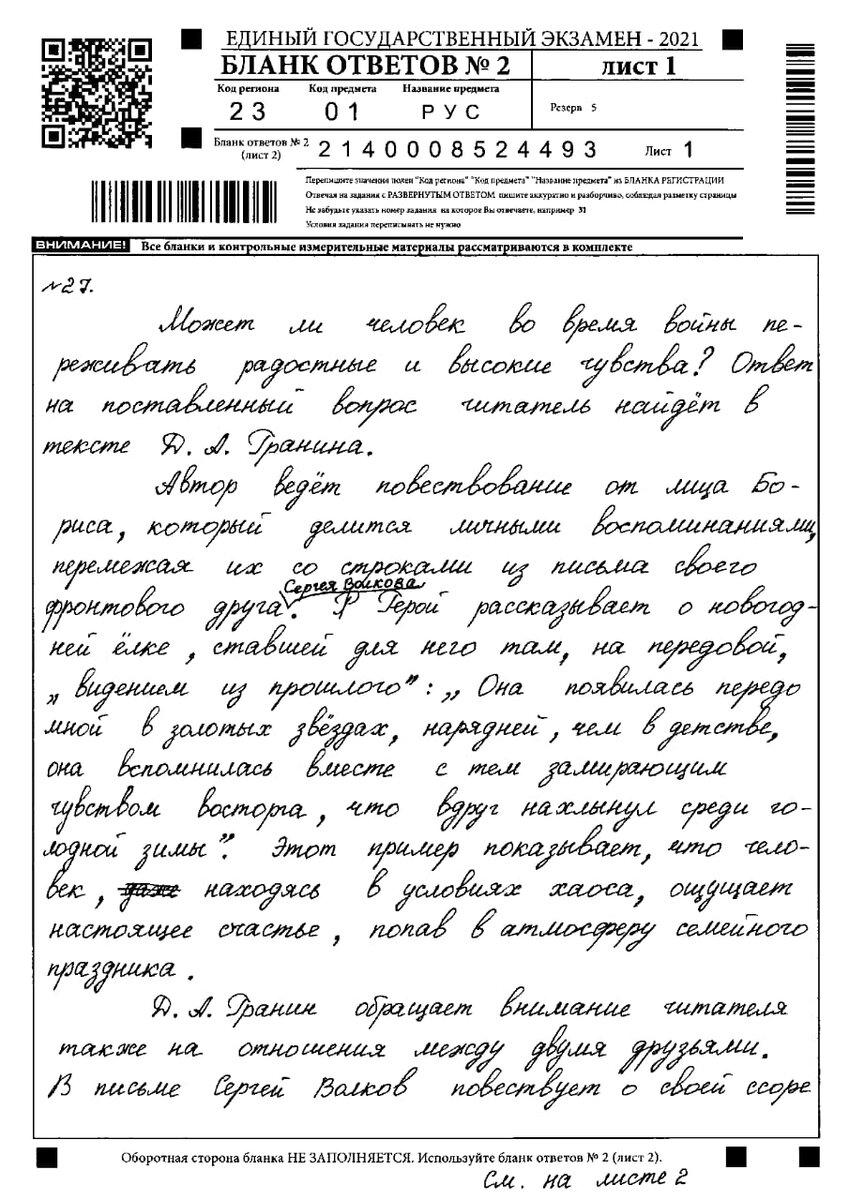 ЕДИНЫЙ ГОСУДАРСТВЕННЫЙ ЭКЗАМЕН - 2021
БЛАНК ОТВЕТОВ № 2
лист 1
Код региона Код предмета Название предмета
23 01 РУС
Резерв 5
Бланк ответов № 2
(лист 2)
2140008524493
Лист 1
Перепишите значения полей "Код региона" "Код предмета" "Название предмета" из БЛАНКА РЕГИСТРАЦИИ
Отвечая на задания с РАЗВЕРНУТЫМ ОТВЕТОМ пишите аккуратно и разборчиво, соблюдая разметку страницы
Не забудьте указать номер задания на которое Вы отвечаете, например 31
Условия задания переписывать не нужно
ВНИМАНИЕ! Все бланки и контрольные измерительные материалы рассматриваются в комплекте
№27.
Может ли человек во время войны пе-
реживать радостные и высокие чувства? Ответ
на поставленный вопрос читатель найдёт в
тексте Д. А. Гранина.
Автор ведёт повествование от лица Бо-
риса, который делится личными воспоминаниями,
перемежая их со строками из письма своего
Сергея Волкова
фронтового друга. Герой рассказывает о новогод-
ней ёлке, ставшей для него там, на передовой,
„видением из прошлого": „Она появилась передо
мной в золотых звёздах, нарядней, чем в детстве,
она вспомнилась вместе с тем замирающим
чувством восторга, что вдруг нахлынул среди го-
лодной зимы". Этот пример показывает, что чело-
век, даже находясь в условиях хаоса, ощущает
настоящее счастье, попав в атмосферу семейного
праздника.
Д. А. Гранин обращает внимание читателя
также на отношения между двумя друзьями.
В письме Сергей Волков повествует о своей ссоре
Оборотная сторона бланка НЕ ЗАПОЛНЯЕТСЯ. Используйте бланк ответов № 2 (лист 2).
См. на листе 2